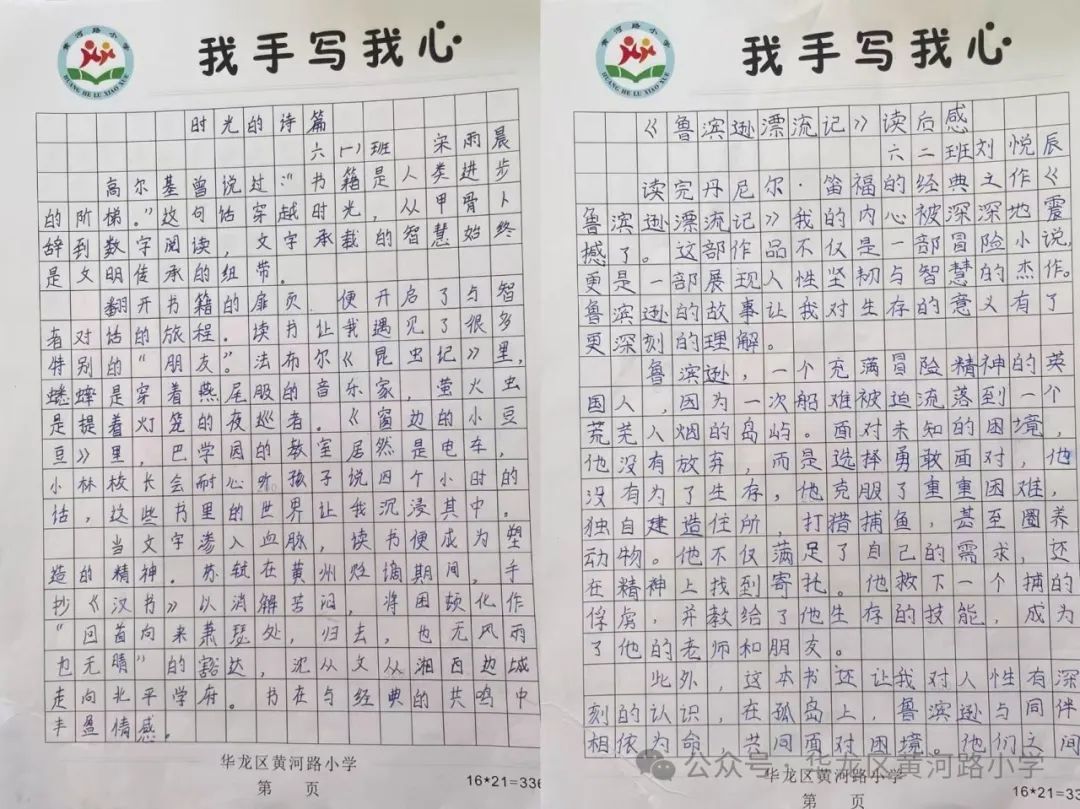 黄河路小学
HUANG HE LU XIAO XUE
我手写我心
时光的诗篇
六(一)班 宋雨晨
高尔基曾说过:"书籍是人类进步
的阶梯。"这句话穿越时光,从甲骨卜
辞到数字阅读,文字承载的智慧始终
是文明传承的纽带。
翻开书籍的扉页,便开启了与智
者对话的旅程。读书让我遇见了很多
特别的"朋友"。法布尔《昆虫记》里,
蟋蟀是穿着燕尾服的音乐家,萤火虫
是提着灯笼的夜巡者。《窗边的小豆
豆》里,巴学园的教室居然是电车,
小林校长会耐心听孩子说四个小时的
话,这些书里的世界让我沉浸其中。
当文字渗入血脉,读书便成为塑
造的精神。苏轼在黄州贬谪期间,手
抄《汉书》以消解苦闷,将困顿化作
"回首向来萧瑟处,归去,也无风雨
也无晴"的豁达,沈从文从湘西边城
走向北平学府。书在与经典的共鸣中
丰盈情感。
华龙区黄河路小学
第 页
16*21=336
黄河路小学
HUANG HE LU XIAO XUE
我手写我心
《鲁滨逊漂流记》读后感
六二班刘悦辰
读完丹尼尔·笛福的经典之作《
鲁滨逊漂流记》我的内心被深深地震
撼了。这部作品不仅是一部冒险小说,
更是一部展现人性坚韧与智慧的杰作。
鲁滨逊的故事让我对生存的意义有了
更深刻的理解。
鲁滨逊,一个充满冒险精神的英
国人,因为一次船难被迫流落到一个
荒芜人烟的岛屿。面对未知的困境,
他没有放弃,而是选择勇敢面对,他
没有为了生存,他克服了重重困难,
独自建造住所,打猎捕鱼,甚至圈养
动物。他不仅满足了自己的需求,还
在精神上找到寄托。他救下一个捕的
俘虏,并教给了他生存的技能,成为
了他的老师和朋友。
此外,这本书还让我对人性有深
刻的认识,在孤岛上,鲁滨逊与同伴
相依为命,共同面对困境。他们之间
华龙区黄河路小学
第 页
16*21=33
公众号·华龙区黄河路小学